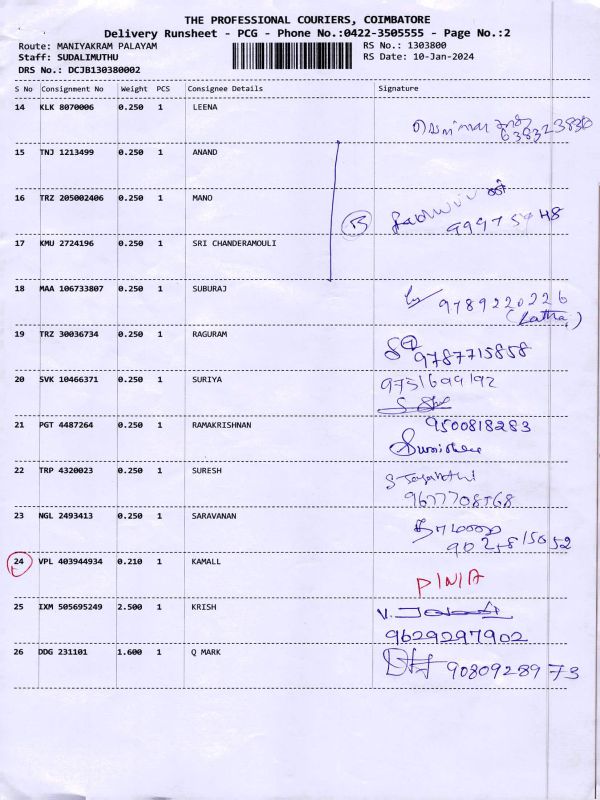 THE PROFESSIONAL COURIERS, COIMBATORE
Delivery Runsheet - PCG - Phone No.:0422-3505555 - Page No.:2
Route: MANIYAKRAM PALAYAM RS No.: 1303800
Staff: SUDALIMUTHU RS Date: 10-Jan-2024
DRS No.: DCJB130380002
S No Consignment No Weight PCS Consignee Details Signature
14 KLK 8070006 0.250 1 LEENA
15 TNJ 1213499 0.250 1 ANAND
16 TRZ 205002406 0.250 1 MANO
17 KMU 2724196 0.250 1 SRI CHANDERAMOULI
18 MAA 106733807 0.250 1 SUBURAJ
9789220226
(Latha)
19 TRZ 30036734 0.250 1 RAGURAM
9787715858
20 SVK 10466371 0.250 1 SURIYA
21 PGT 4487264 0.250 1 RAMAKRISHNAN 9500818283
22 TRP 4320023 0.250 1 SURESH
9677708568
23 NGL 2493413 0.250 1 SARAVANAN
24 VPL 403944934 0.210 1 KAMALL
25 IXM 505695249 2.500 1 KRISH
9629297902
26 DDG 231101 1.600 1 Q MARK 9080928973